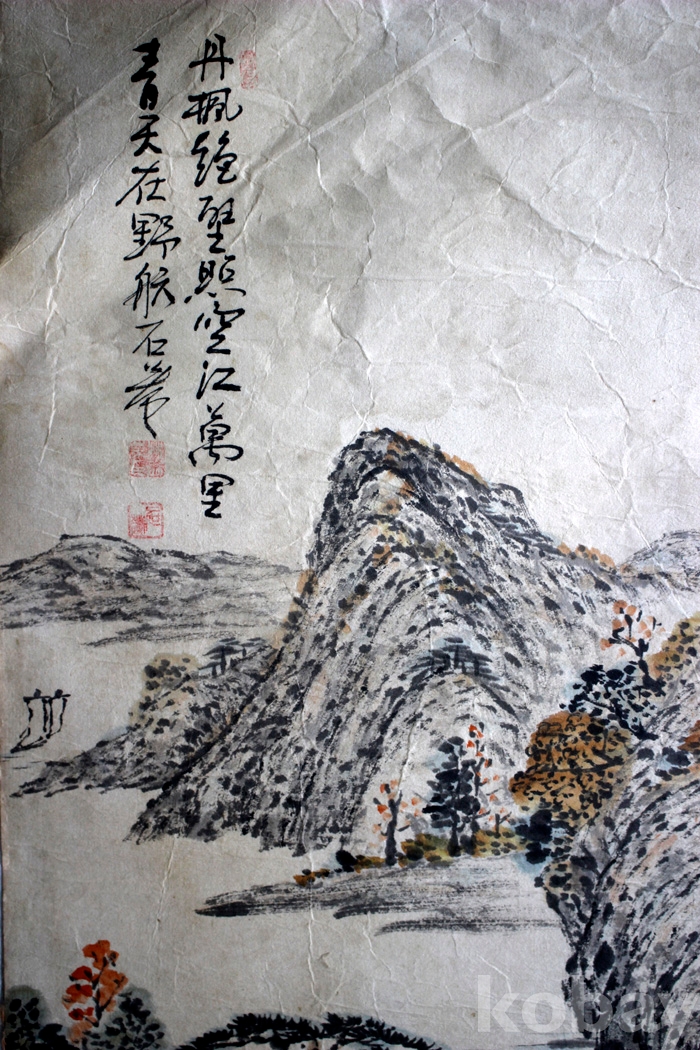 丹楓絶壁照空江萬里
青天在野航石巖
kobay